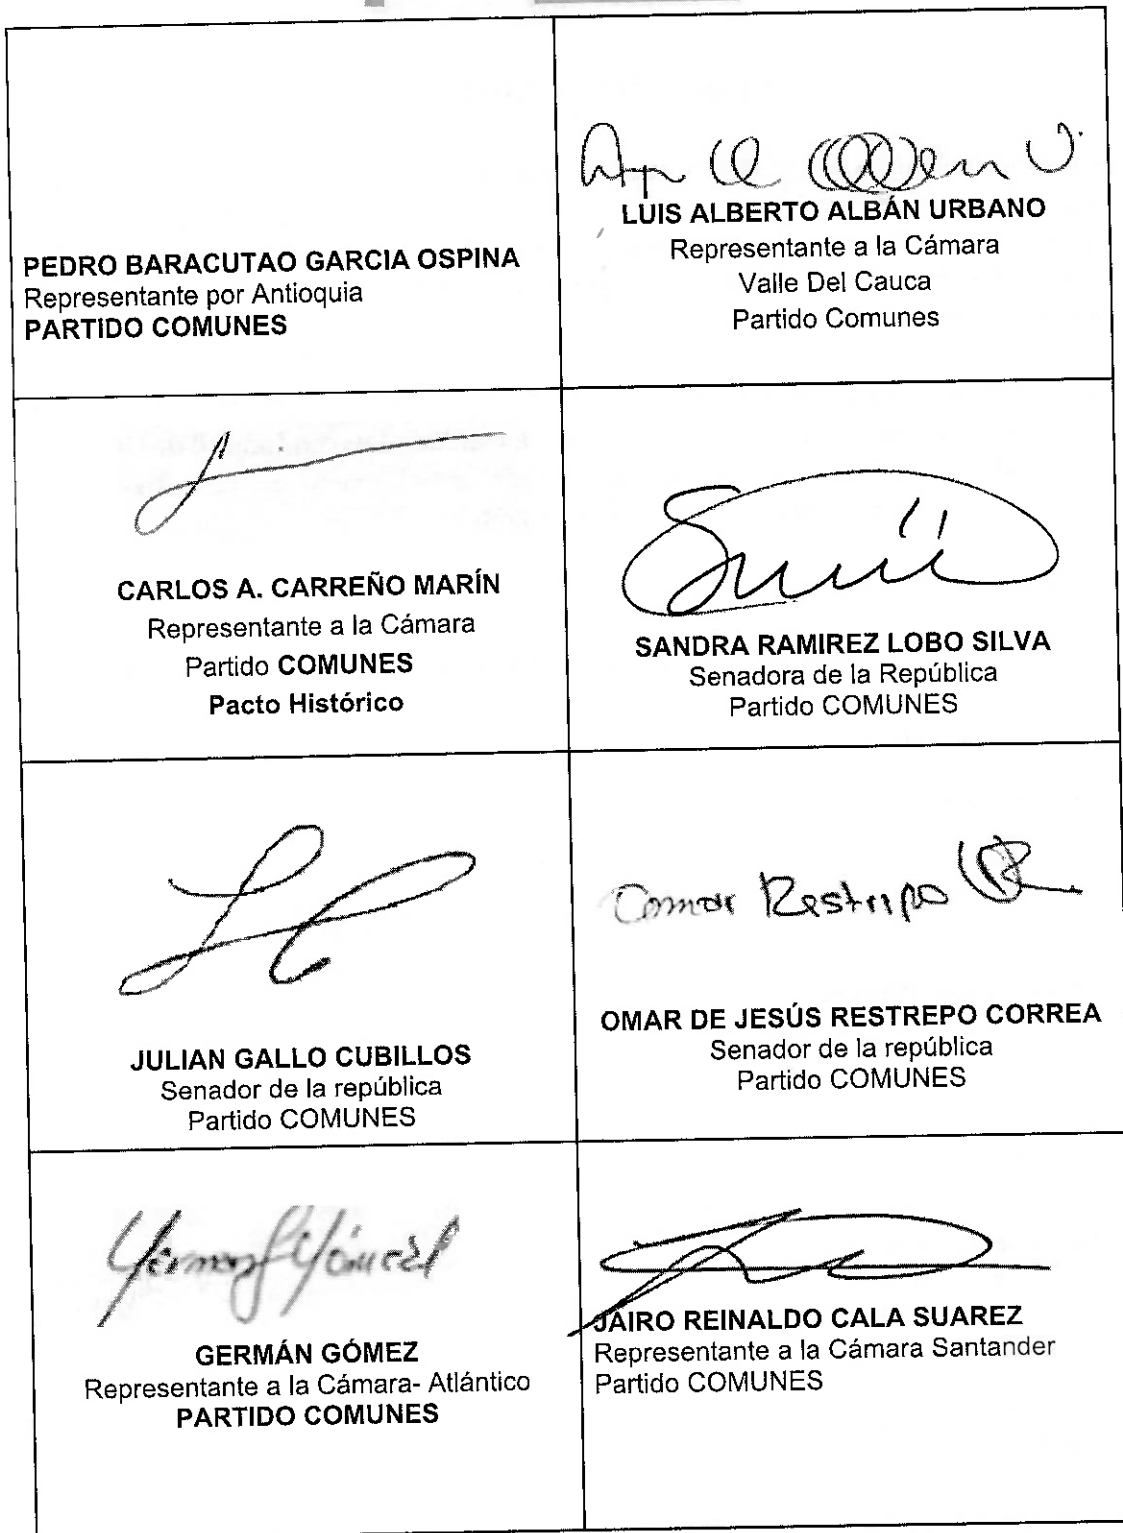 PEDRO BARACUTAO GARCIA OSPINA
Representante por Antioquia
PARTIDO COMUNES
LUIS ALBERTO ALBÁN URBANO
Representante a la Cámara
Valle Del Cauca
Partido Comunes
CARLOS A. CARREÑO MARÍN
Representante a la Cámara
Partido COMUNES
Pacto Histórico
SANDRA RAMIREZ LOBO SILVA
Senadora de la República
Partido COMUNES
JULIAN GALLO CUBILLOS
Senador de la república
Partido COMUNES
Omar Restrepo
OMAR DE JESÚS RESTREPO CORREA
Senador de la república
Partido COMUNES
GERMÁN GÓMEZ
Representante a la Cámara- Atlántico
PARTIDO COMUNES
JAIRO REINALDO CALA SUAREZ
Representante a la Cámara Santander
Partido COMUNES